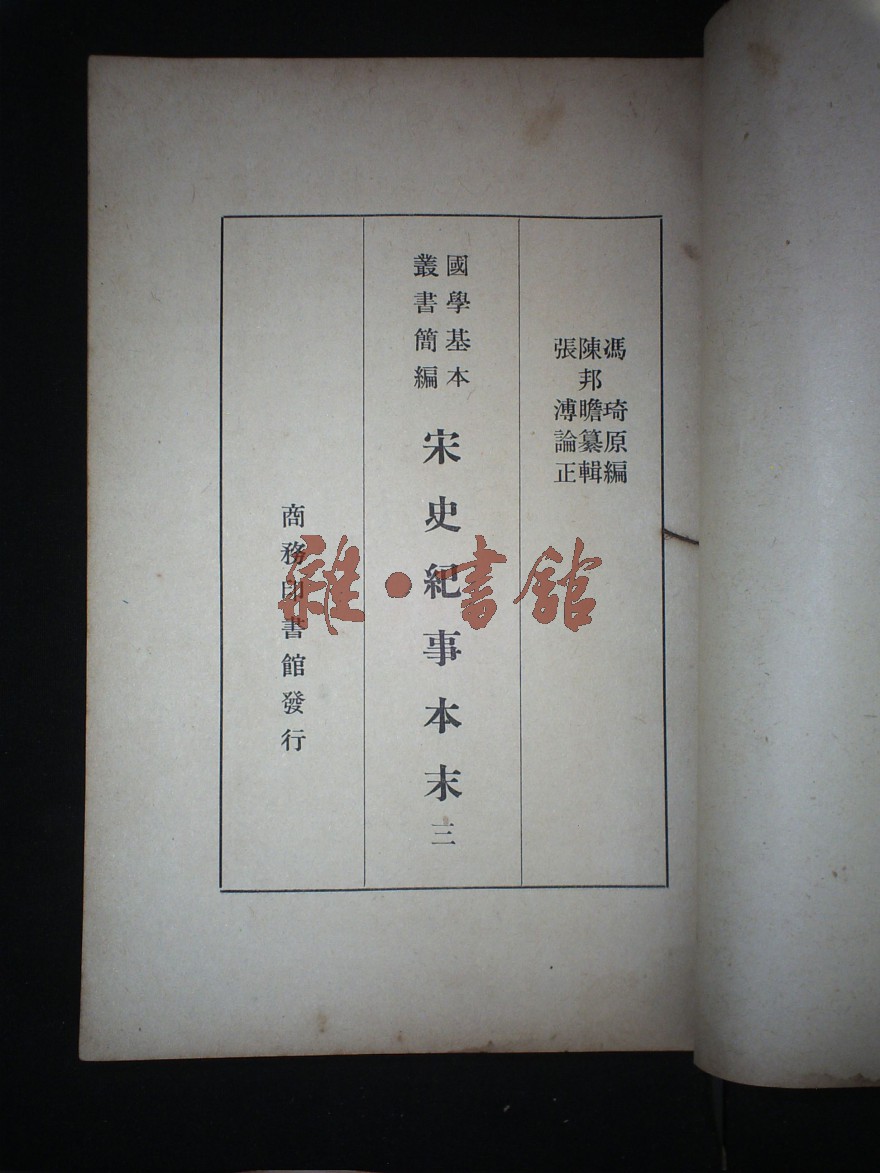 馮琦原編
陳邦瞻纂輯
張溥論正
國學基本
叢書簡編
宋史紀事本末三
商務印書館發行
雜·書館